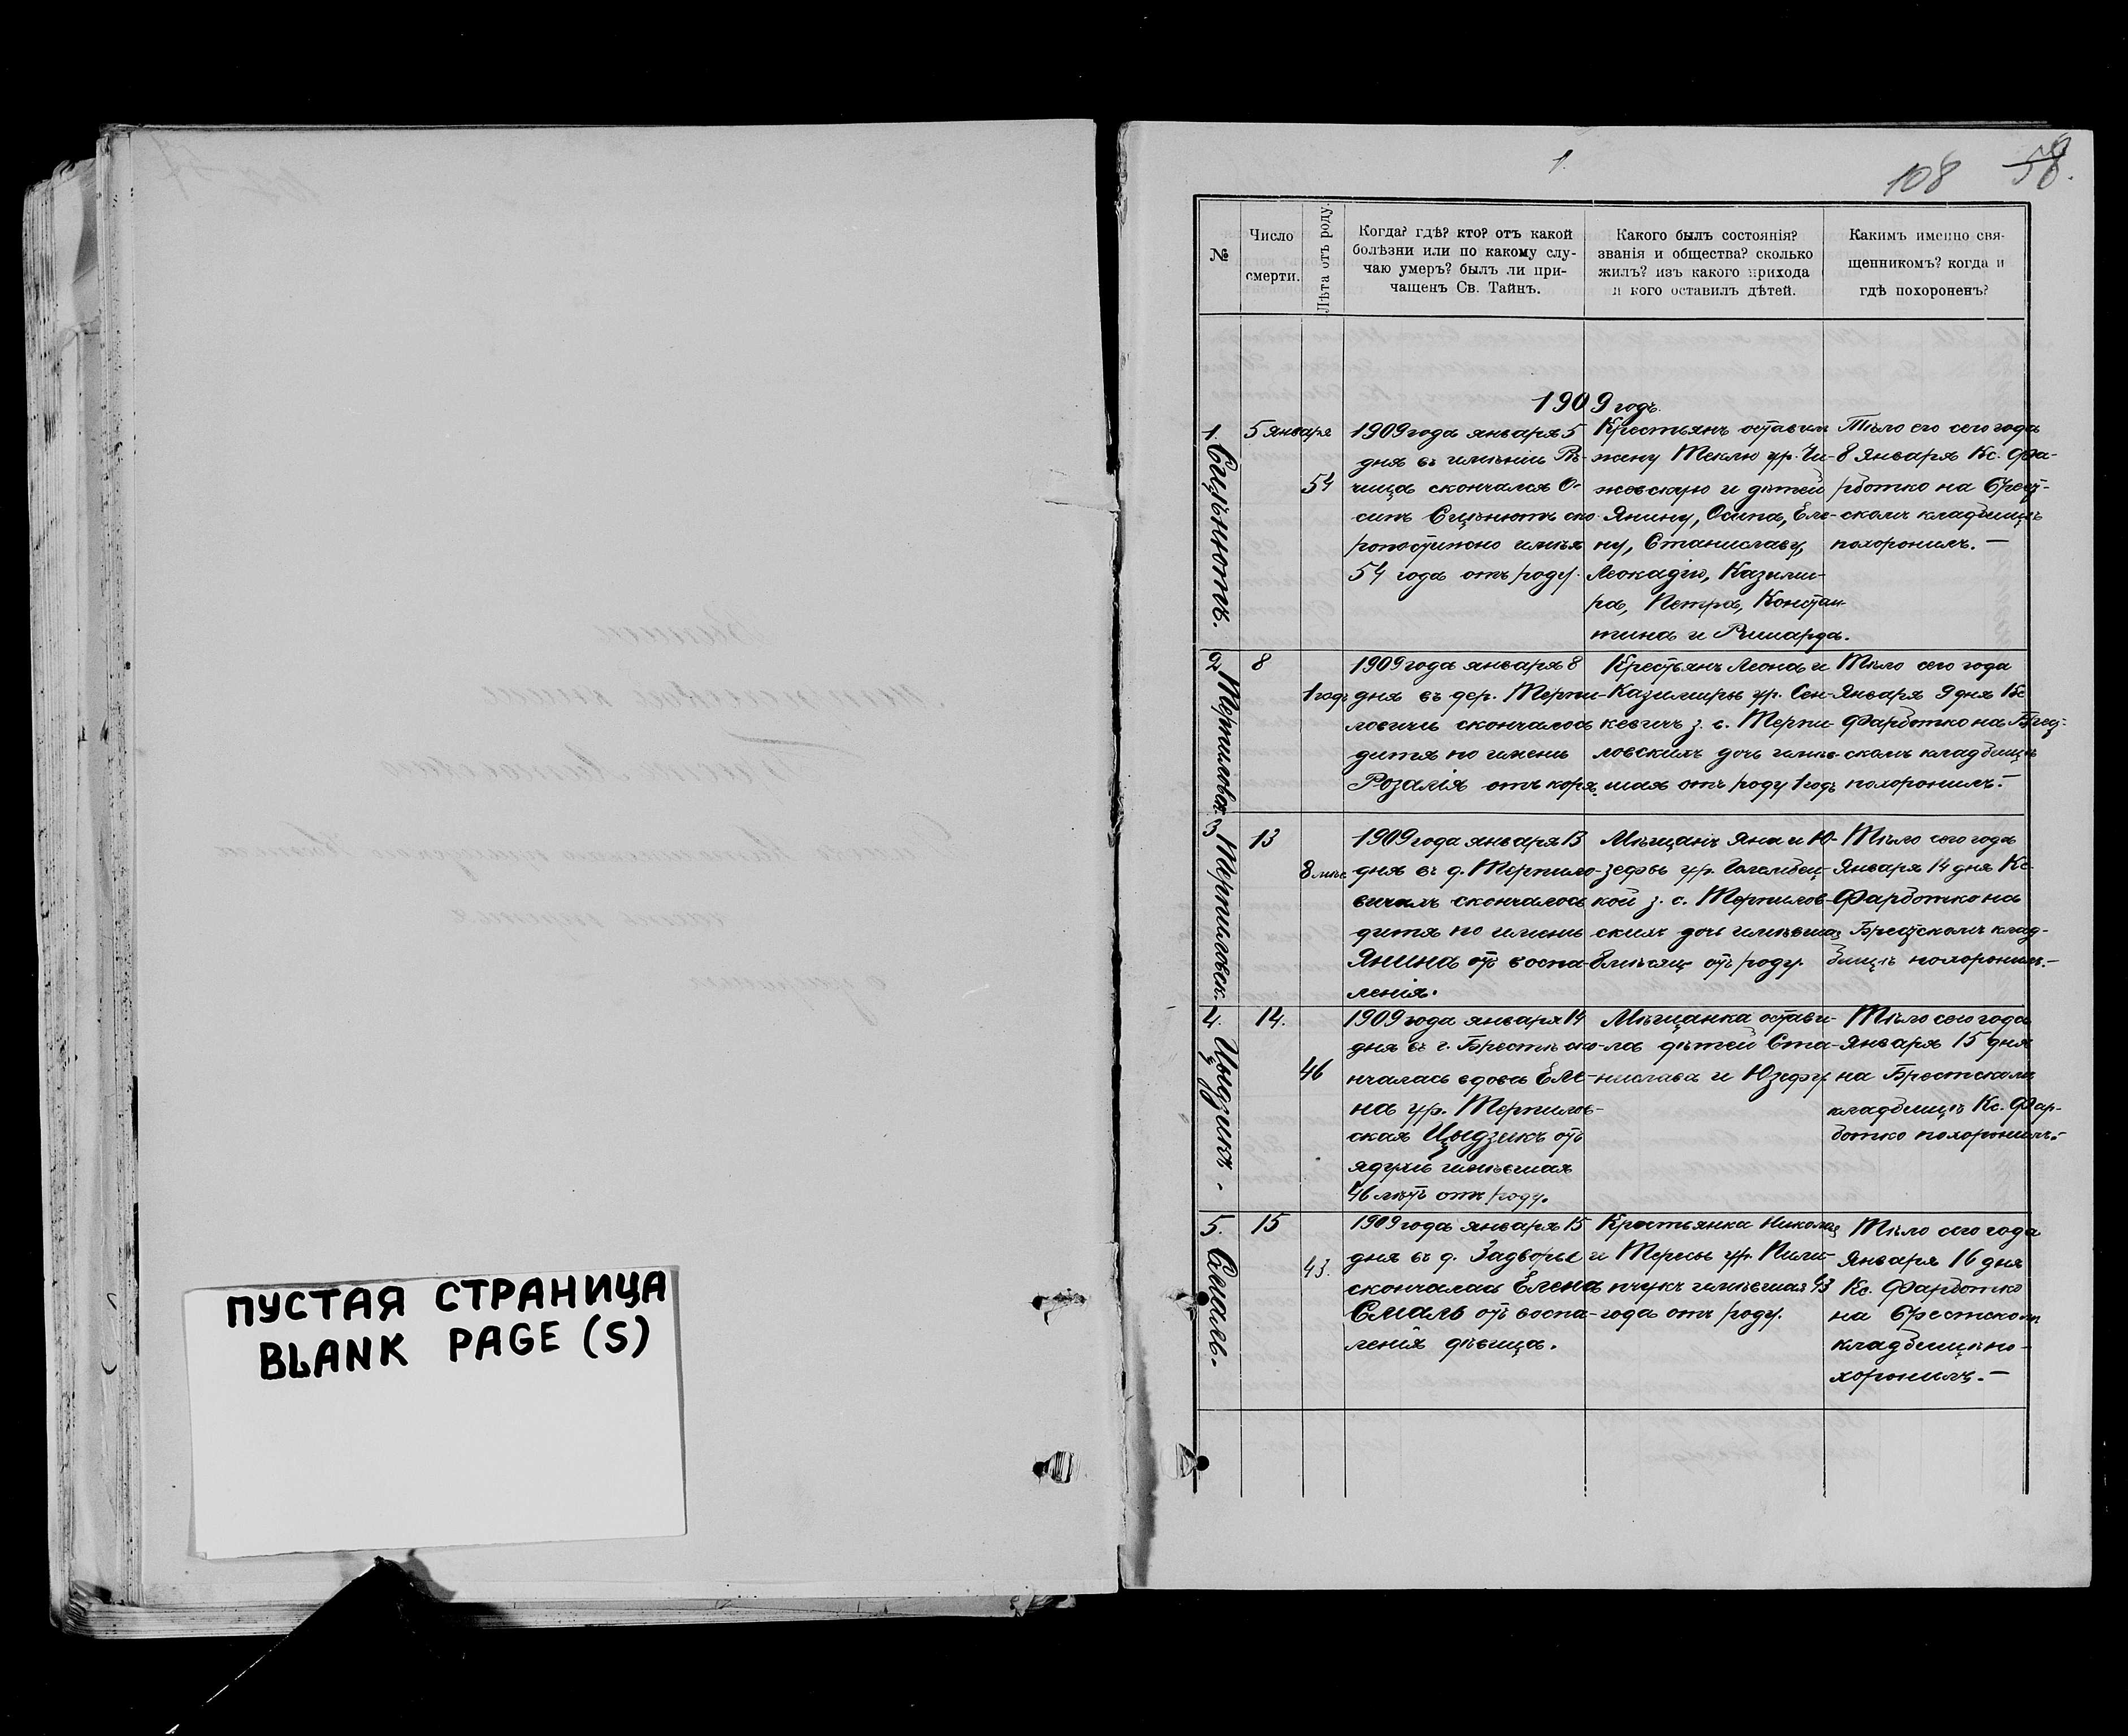 ПУСТАЯ СТРАНИЦА
BLANK PAGE (S)
1.
108 58.
№
Число
смерти.
Лѣта отъ роду.
Когда? гдѣ? кто? отъ какой
болѣзни или по какому слу-
чаю умеръ? былъ ли при-
чащенъ Св. Тайнъ.
Какого былъ состоянія?
званія и общества? сколько
жилъ? изъ какого прихода
и кого оставилъ дѣтей.
Какимъ именно свя-
щенникомъ? когда и
гдѣ похороненъ?
1909 годъ.
1.
5 января
54
1909 года января 5
дня въ имѣніи
скончался О-
сипъ ско-
ропостижно имѣя
54 года отъ роду.
Крестьянъ оставилъ
жену Теклю ур.
и дѣтей
Янину, Осипа, Еле-
ну, Станиславу,
Леокадію, Казими-
ра, Петра, Констан-
тина и Ришарда.
Тѣло его сего года
8 Января Кс. Фа-
рботко на Брест-
скомъ кладбищѣ
похоронилъ. —
2
Терпиловск.
8
1 годъ
1909 года января 8
дня въ дер. Терпи-
ловичи скончалось
дитя по имени
Розалія отъ коря.
Крестьянъ Леона и
Казимиры ур. Сен-
кевичъ з. с. Терпи-
ловскихъ дочь имѣв-
шая отъ роду 1 годъ
Тѣло сего года
Января 9 дня Кс
Фарботко на Брест-
скомъ кладбищѣ
похоронилъ. —
3
Терпиловск.
13
8 мѣс.
1909 года января 13
дня въ д. Терпило-
вичахъ скончалось
дитя по имени
Янина отъ воспа-
ленія.
Мѣщанъ Яна и Ю-
зефы ур.
кой з. с. Терпилов-
скихъ дочь имѣвшая
8 мѣсяц. отъ роду.
Тѣло сего года
Января 14 дня Кс
Фарботко на
Брестскомъ клад-
бищѣ похоронилъ. —
4.
Цыдзикъ.
14.
46
1909 года января 14
дня въ г. Брестѣ ско-
нчалась вдова Еле-
на ур. Терпилов-
ская Цыдзикъ отъ
имѣвшая
46 лѣтъ отъ роду.
Мѣщанка остави-
ла дѣтей Ста-
нислава и Юзефу.
Тѣло сего года
Января 15 дня
на Брестскомъ
кладбищѣ Кс. Фар-
ботко похоронилъ. —
5.
Смаль.
15
43.
1909 года января 15
дня въ д. Задворье
скончалась Елена
Смаль отъ воспа-
ленія дѣвица.
Крестьянка Николая
и Тересы ур. Пили-
пчукъ имѣвшая 43
года отъ роду.
Тѣло сего года
Января 16 дня
Кс. Фарботко
на Брестскомъ
кладбищѣ по-
хоронилъ. —